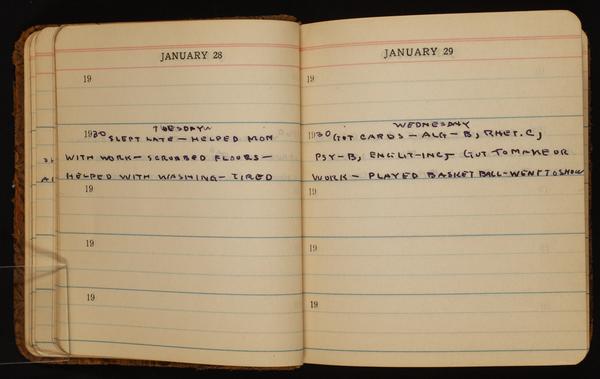 JANUARY 28
19
TUESDAY
1930 SLEPT LATE - HELPED MOM
WITH WORK - SCRUBBED FLOORS -
HELPED WITH WASHING - TIRED
19
19
19
JANUARY 29
19
WEDNESDAY
1930 GOT CARDS - ALG - B, RHET. C,
PSY - B, ENG. LIT - INC, - GOT TO MAKE UP
WORK - PLAYED BASKET BALL - WENT TO SHOW
19
19
19